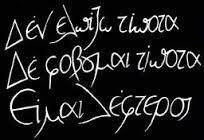 Δεν ελπίζω τίποτα
Δε φοβούμαι τίποτα
Είμαι Λέφτερος